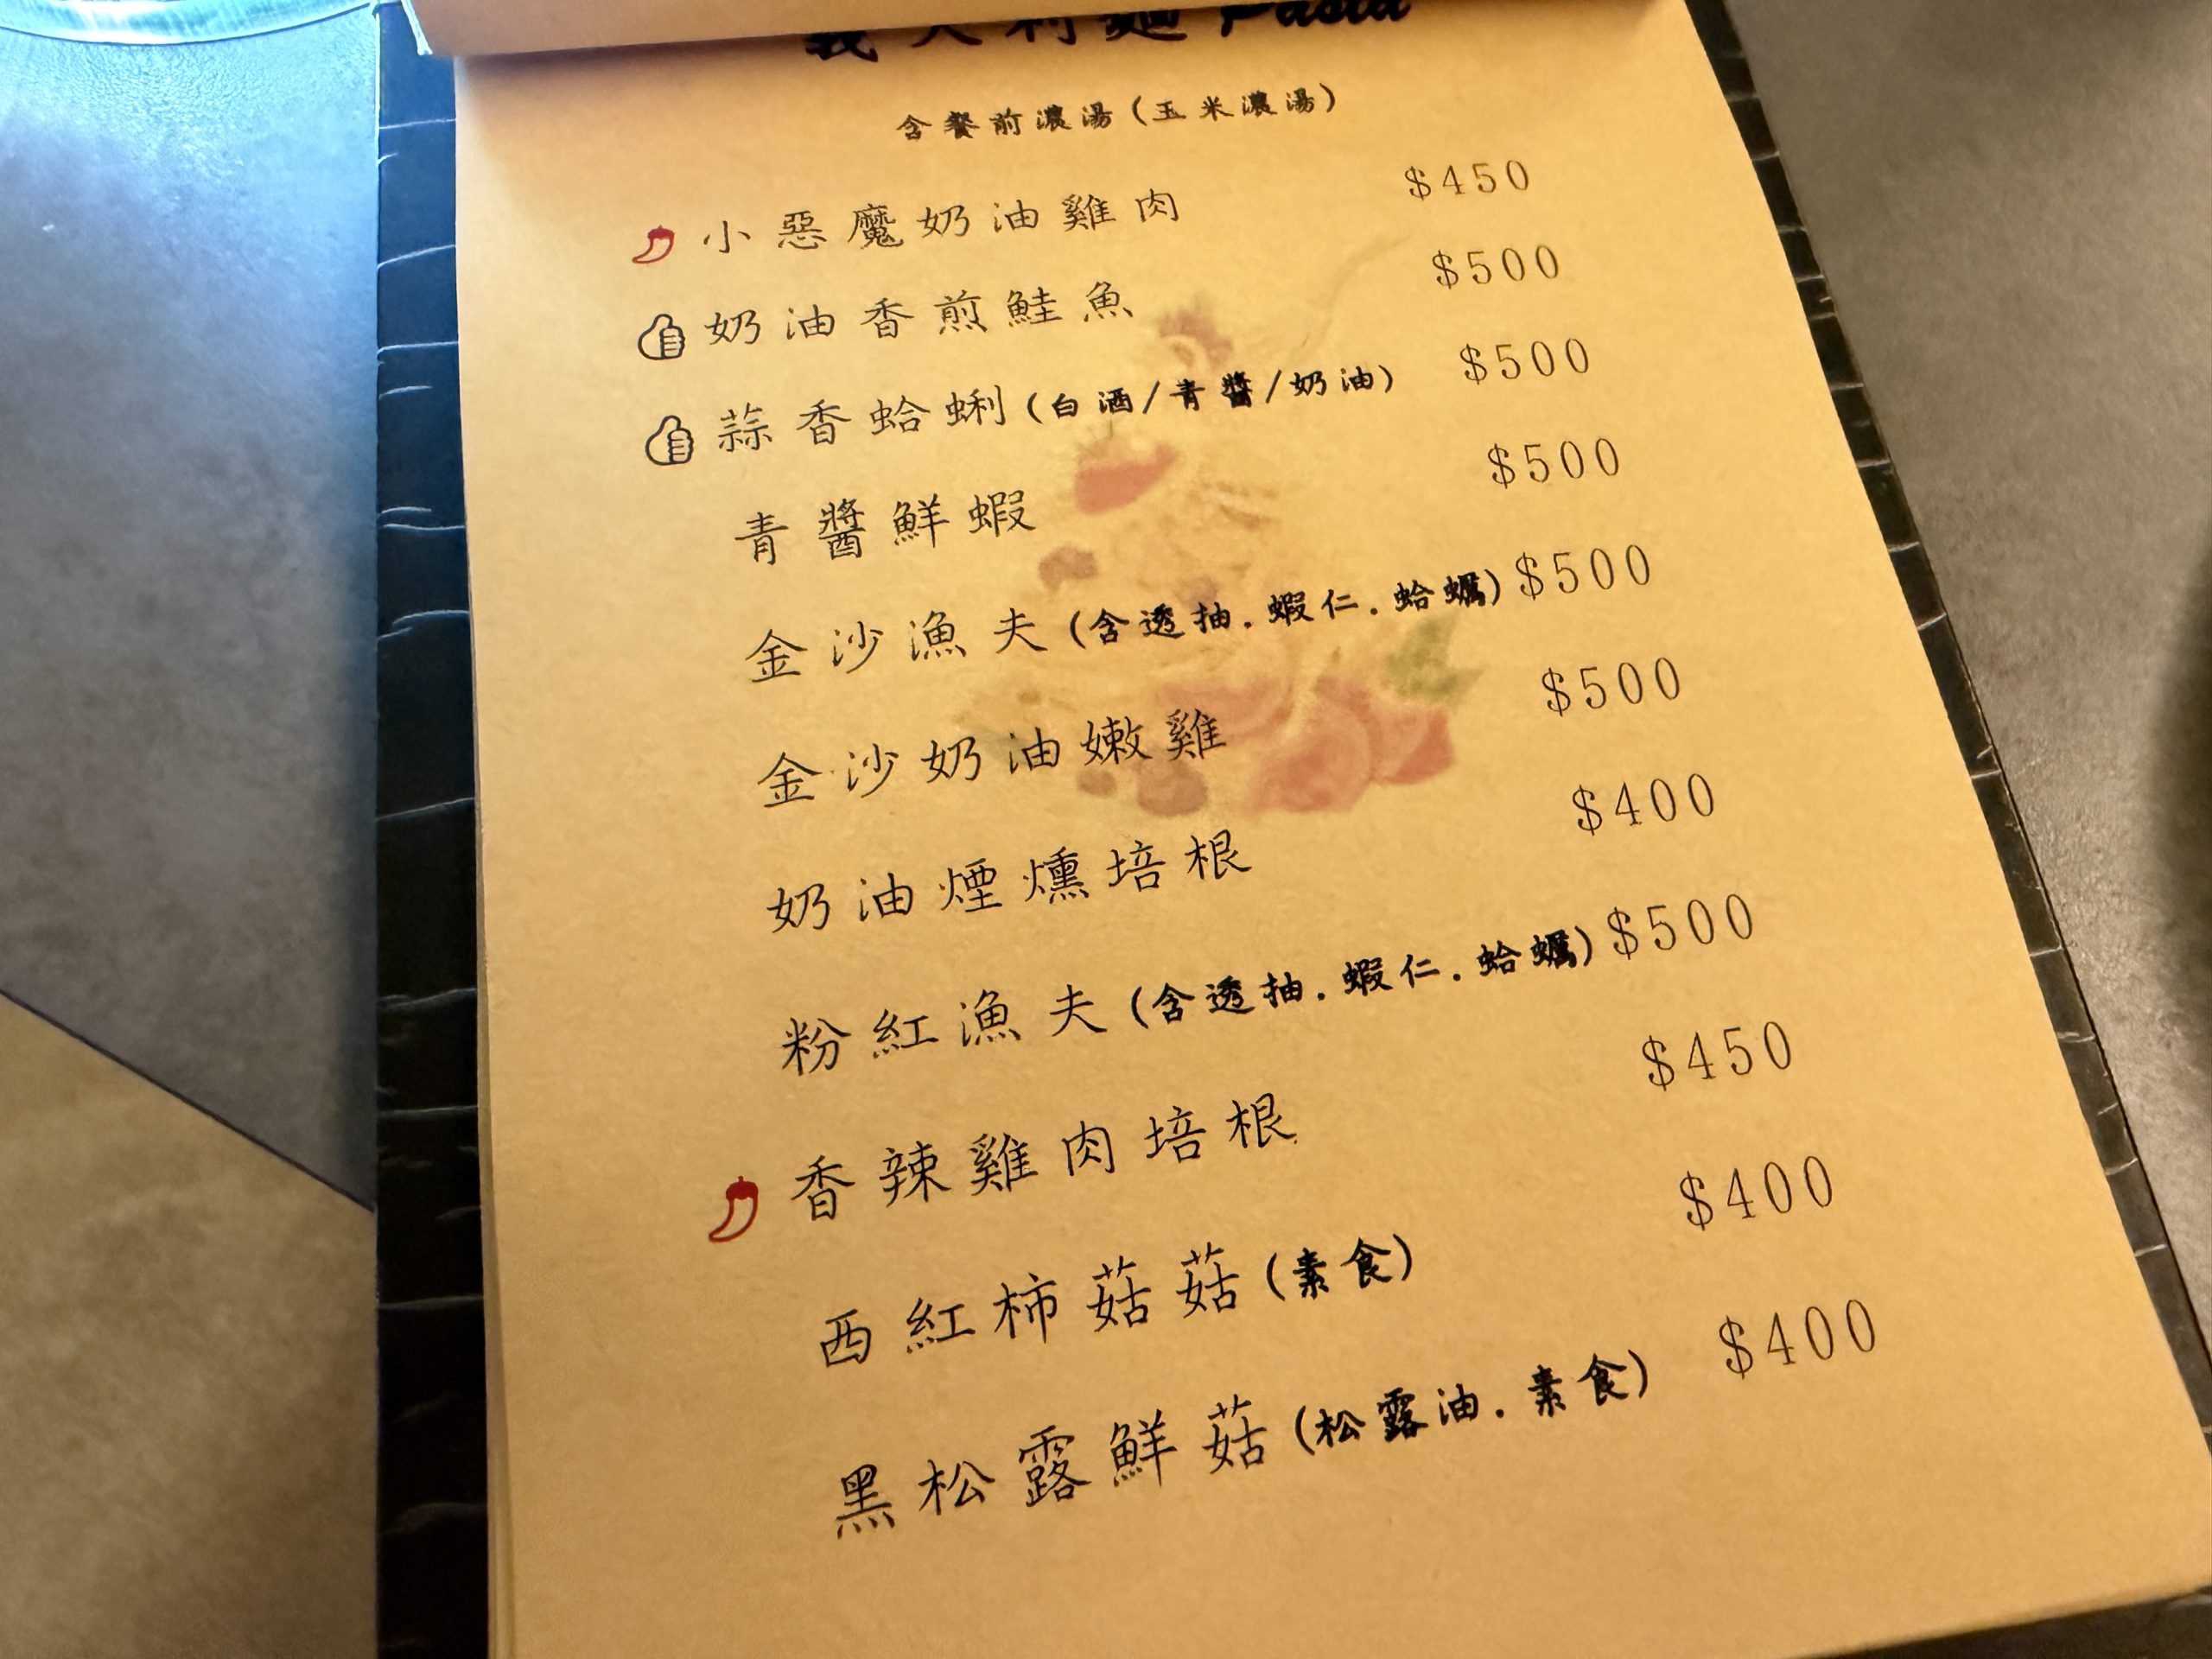 義大利麵 Pasta
含餐前濃湯(玉米濃湯)
小惡魔奶油雞肉 $450
奶油香煎鮭魚 $500
蒜香蛤蜊(白酒/青醬/奶油) $500
青醬鮮蝦 $500
金沙漁夫(含透抽.蝦仁.蛤蠣) $500
金沙奶油嫩雞 $500
奶油煙燻培根 $400
粉紅漁夫(含透抽.蝦仁.蛤蠣) $500
香辣雞肉培根 $450
西紅柿菇菇(素食) $400
黑松露鮮菇(松露油.素食) $400